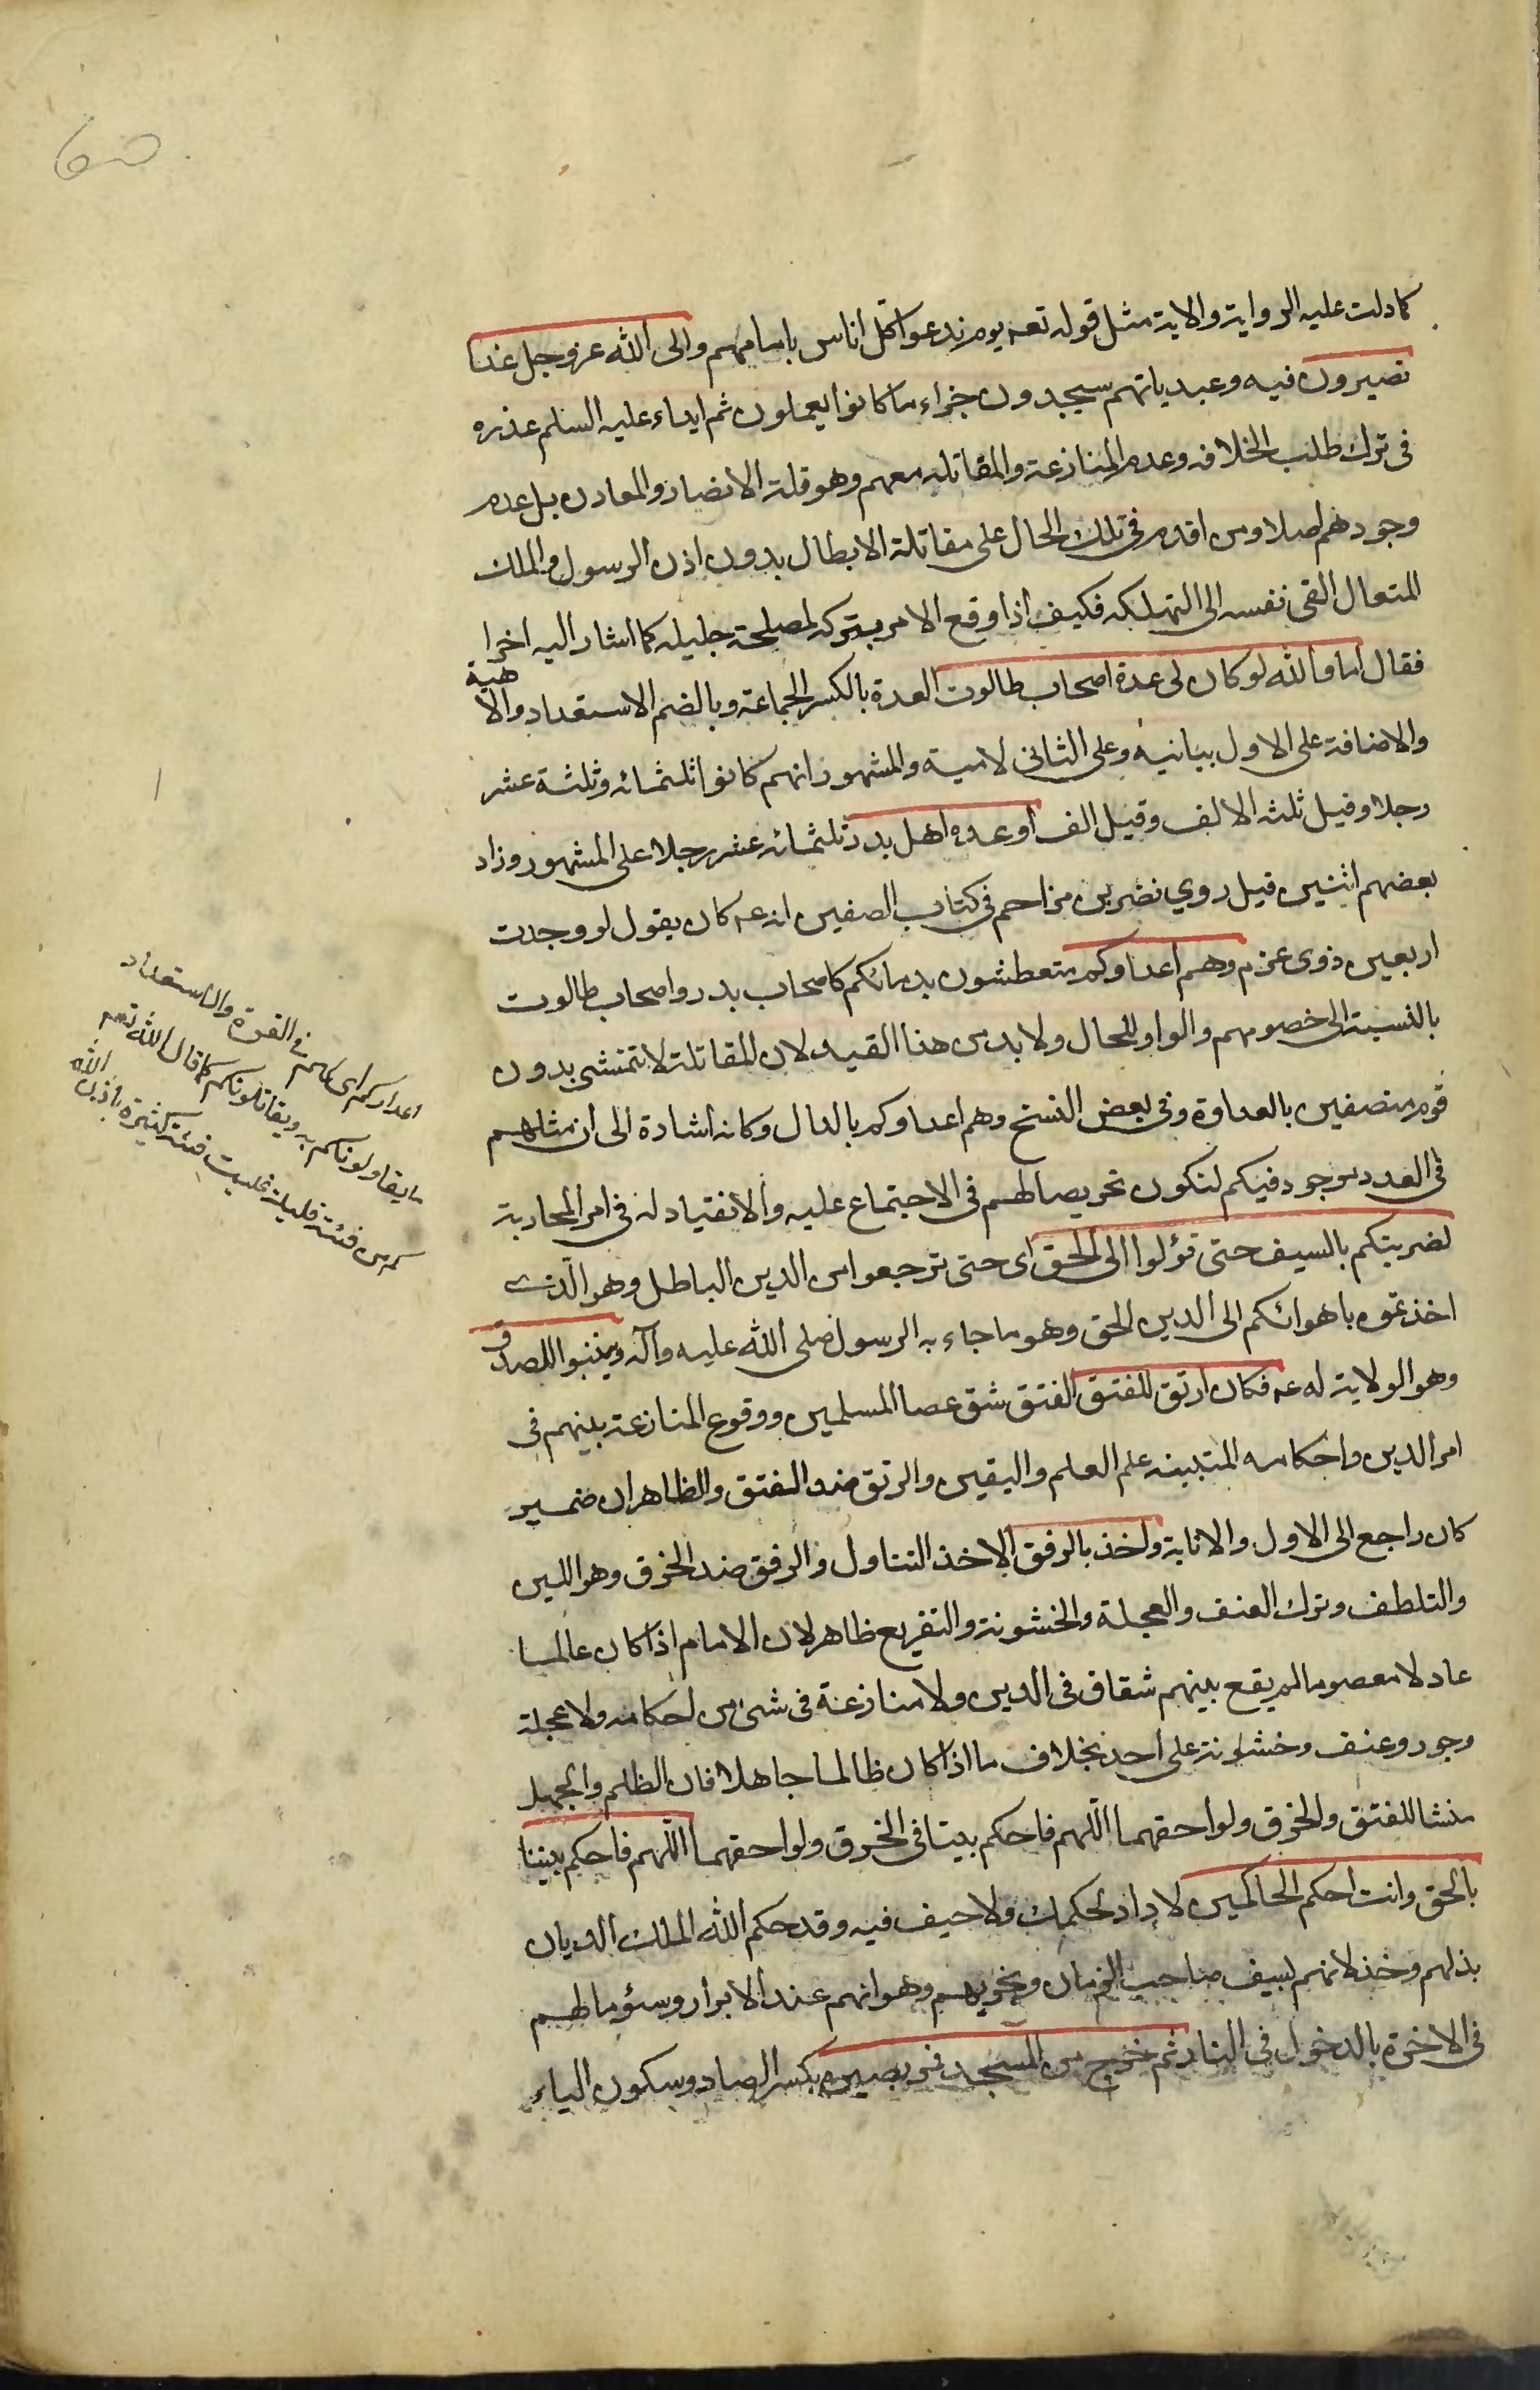 كما دلت عليه الرواية والاية مثل قوله تعه يوم ندعوا كل اناس بامامهم والى الله عز وجل غدا
تصيرون فيه وعيد بانهم سيجدون جزاء ما كانوا يعملون ثم ابداء عليه السلم عذره
فى ترك طلب الخلافه وعدم المنازعة والمقاتله معهم وهو قلة الانصار والمعاون بل عدم
وجودهم اصلا ومن اقدم فى تلك الحال على مقاتلة الابطال بدون اذن الرسول والملك
المتعال القى نفسه الى التهلكه فكيف اذا وقع الامر بتركه لمصلحة جليله كما اشار اليه اخرا
فقال اما والله لو كان لى عدة اصحاب طالوت العدة بالكسر الجماعة وبالضم الاستعداد والاهبة
والاضافة على الاول بيانيه وعلى الثانى لامية والمشهور انهم كانوا ثلثمائه وثلثة عشر
رجلا وقيل ثلثه الالف وقيل الف او عدة اهل بدر ثلثمائه عشر رجلا على المشهور وزاد
بعضهم اثنين قيل روي نضر بن مزاحم فى كتاب الصفين انه عه كان يقول لو وجدت
اربعين ذوى عزم وهم اعداوكم متعطشون بدمائكم كاصحاب بدر واصحاب طالوت
بالنسبة الى خصومهم والواو للحال ولا بد من هذا القيد لان المقاتلة لا تتمشى بدون
قوم متصفين بالعداوة وفى بعض النسخ وهم اعداوكم بالدال وكانه اشارة الى ان مثلهم
فى العدد موجود فيكم لتكون تحريصا لهم فى الاجتماع عليه والانقياد له فى امر المحاربة
لضربتكم بالسيف حتى تؤلوا الى الحق اى حتى ترجعوا من الدين الباطل وهو الذى
اخذتموه باهوائكم الى الدين الحق وهو ما جاء به الرسول صلى الله عليه وآله وتنيبوا للصدق
وهو الولاية له عه فكان ارتق للفتق الفتق شق عصا المسلمين ووقوع المنازعة بينهم فى
امر الدين واحكامه المتبينه علم العلم واليقين والرتق ضد الفتق والظاهر ان ضمير
كان راجع الى الاول والانابة واخذ بالرفق الاخذ التناول والرفق ضد الخرق وهو اللين
والتلطف وترك العنف والعجلة والخشونة والتقريع ظاهر لان الامام اذا كان عالما
عادلا معصوما لم يقع بينهم شقاق فى الدين ولا منازعة فى شئ من احكامه ولا عجلة
وجور وعنف وخشونة على احد بخلاف ما اذا كان ظالما جاهلا فان الظلم والجهل
منشا للفتق والخرق ولواحقهما اللهم فاحكم بيننا فى الخرق ولواحقهما اللهم فاحكم بيننا
بالحق وانت احكم الحاكمين لا راد لحكمك ولا حيف فيه وقد حكم الله الملك الديان
بذلهم وخذلانهم بسيف صاحب الزمان وبخزيهم وهوانهم عند الابرار وسؤ مالهم
فى الاخرة بالدخول فى النار ثم خرج من المسجد فمر بصيرة بكسر الصاد وسكون الياء
اعدادكم اى كلهم فى القوة والاستعداد
ما يقاولونكم به ويقاتلونكم كما قال الله تعه
كم من فئة قليلة غلبت فئة كثيرة باذن الله